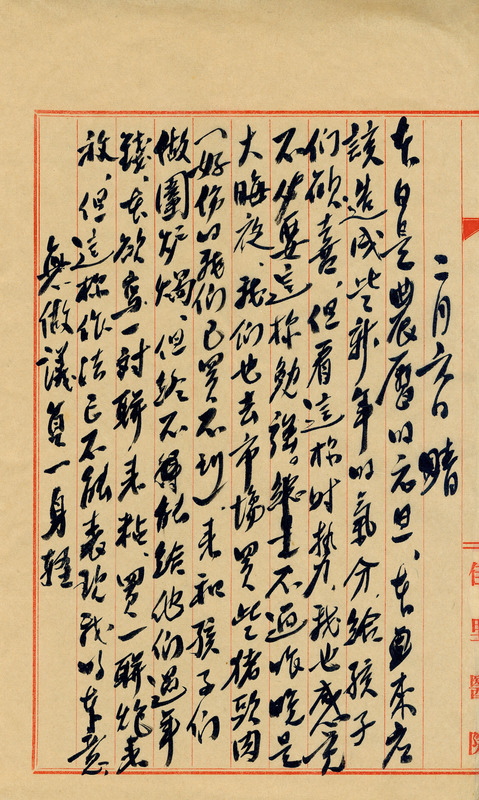 佳里醫院
二月六日 晴
本日是農曆的元旦、本由來應
該造成些新年的氣分、給孩子
們欣喜、但看這樣時勢、我也感覺
不必要這樣勉強。總是不過昨晚是
大晦夜、我們也去市場買些猪頭肉
(好份的我們已買不到)來和孩子們
做圍炉、但終不得能給他們過年
錢、本欲寫一對聯來粘、買一聯炮來
放、但這樣作法已不能表現我的本意
無做議員一身輕